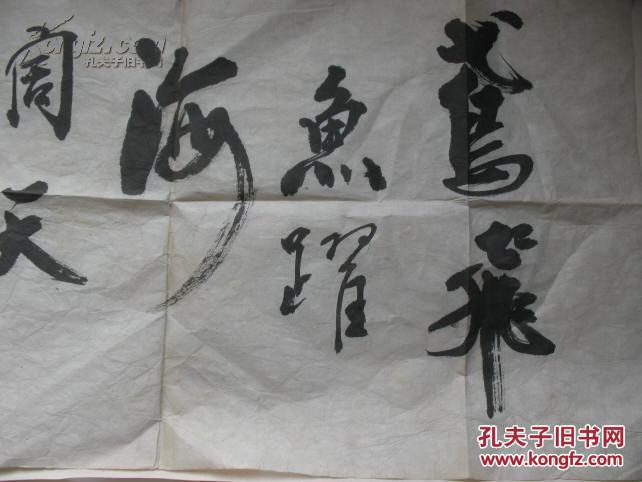 鳶飛
魚躍
海
阔天
Kongfz.com
孔夫子旧书网
孔夫子旧书网
www.kongfz.com